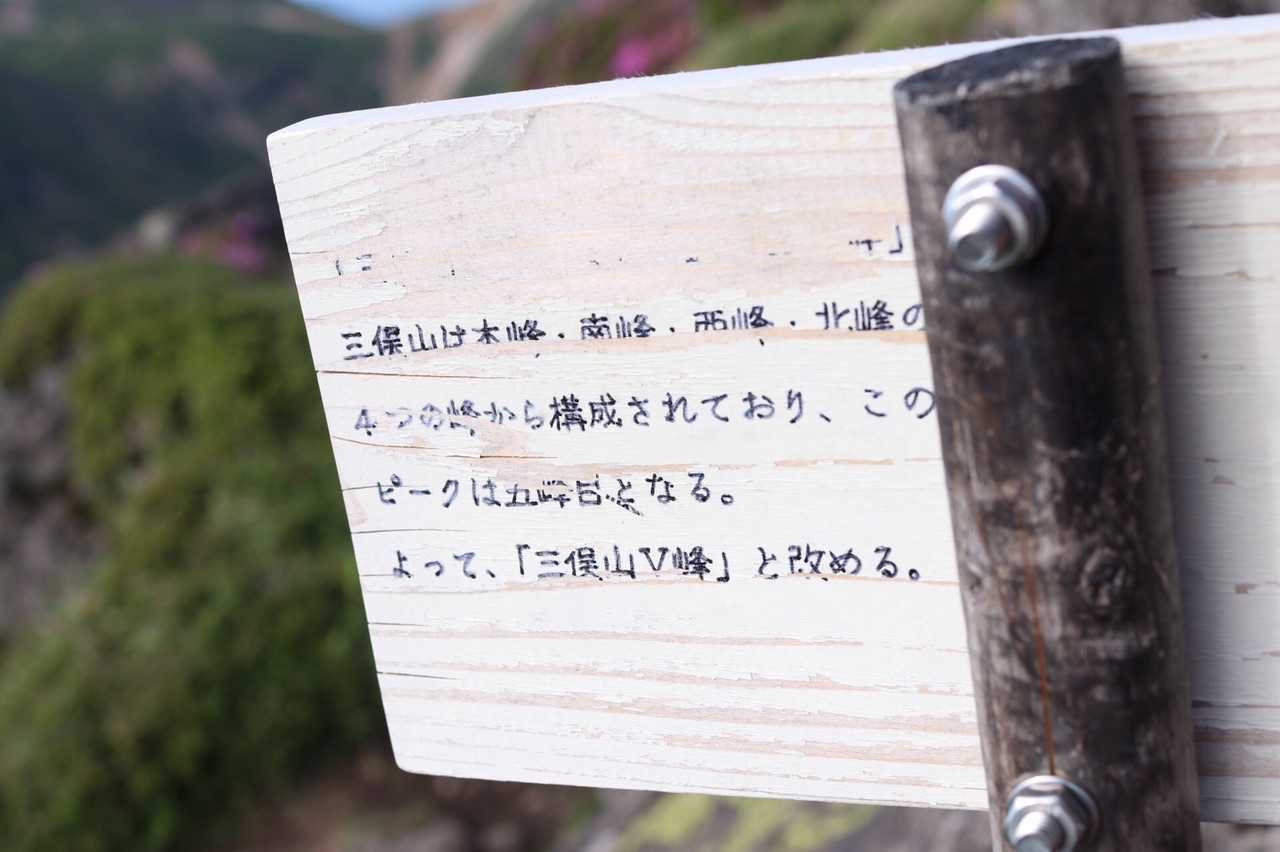 」
三俣山は本峰・南峰・西峰・北峰の
4つの峰から構成されており、この
ピークは五峰目となる。
よって、「三俣山Ⅴ峰」と改める。